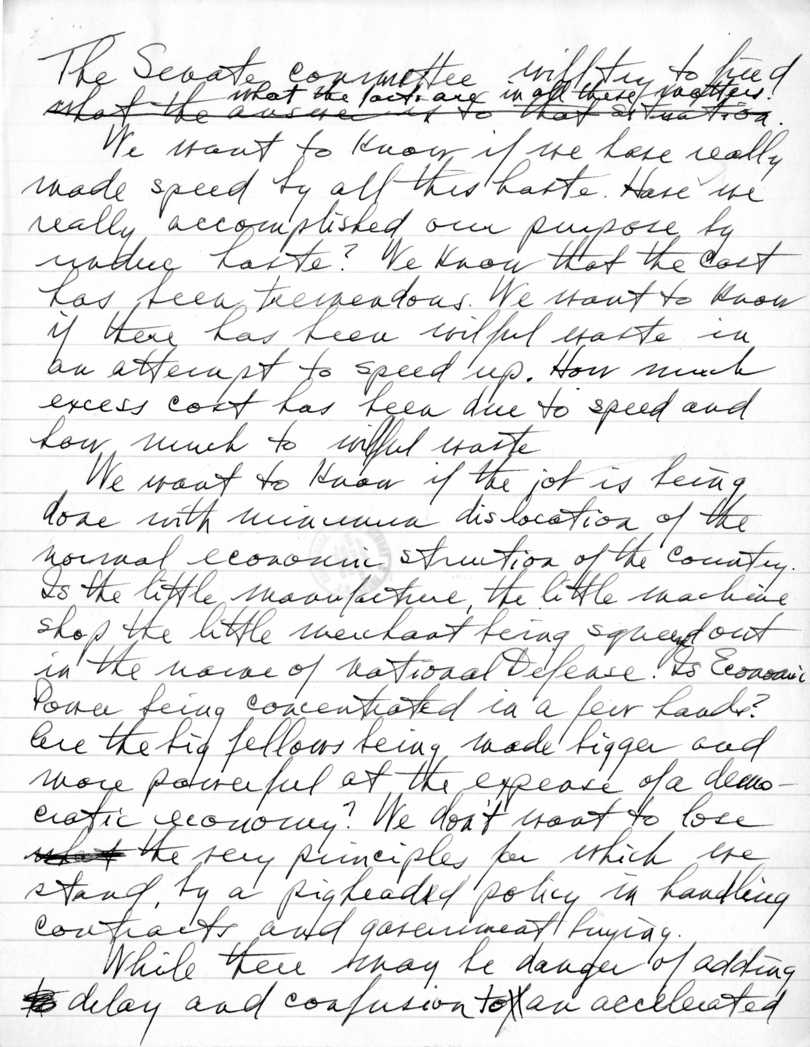 The Senate committee will try to find
what the facts are in all these matters.
what the answer is to that situation.
We want to know if we have really
made speed by all this haste. Have we
really accomplished our purpose by
undue haste? We know that the cost
has been tremendous. We want to know
if there has been wilful waste in
an attempt to speed up. How much
excess cost has been due to speed and
how much to wilful waste
We want to know if the job is being
done with minimum dislocation of the
normal economic struction of the country.
Is the little manufacture, the little machine
shop the little merchant being squeezed out
in the name of National Defense. Is Economic
Power being concentrated in a few hands?
Are the big fellows being made bigger and
more powerful at the expense of a demo-
cratic economy? We don't want to lose
what the very principles for which we
stand, by a pigheaded policy in handling
contracts and government buying.
While there may be danger of adding
to delay and confusion to an accelerated